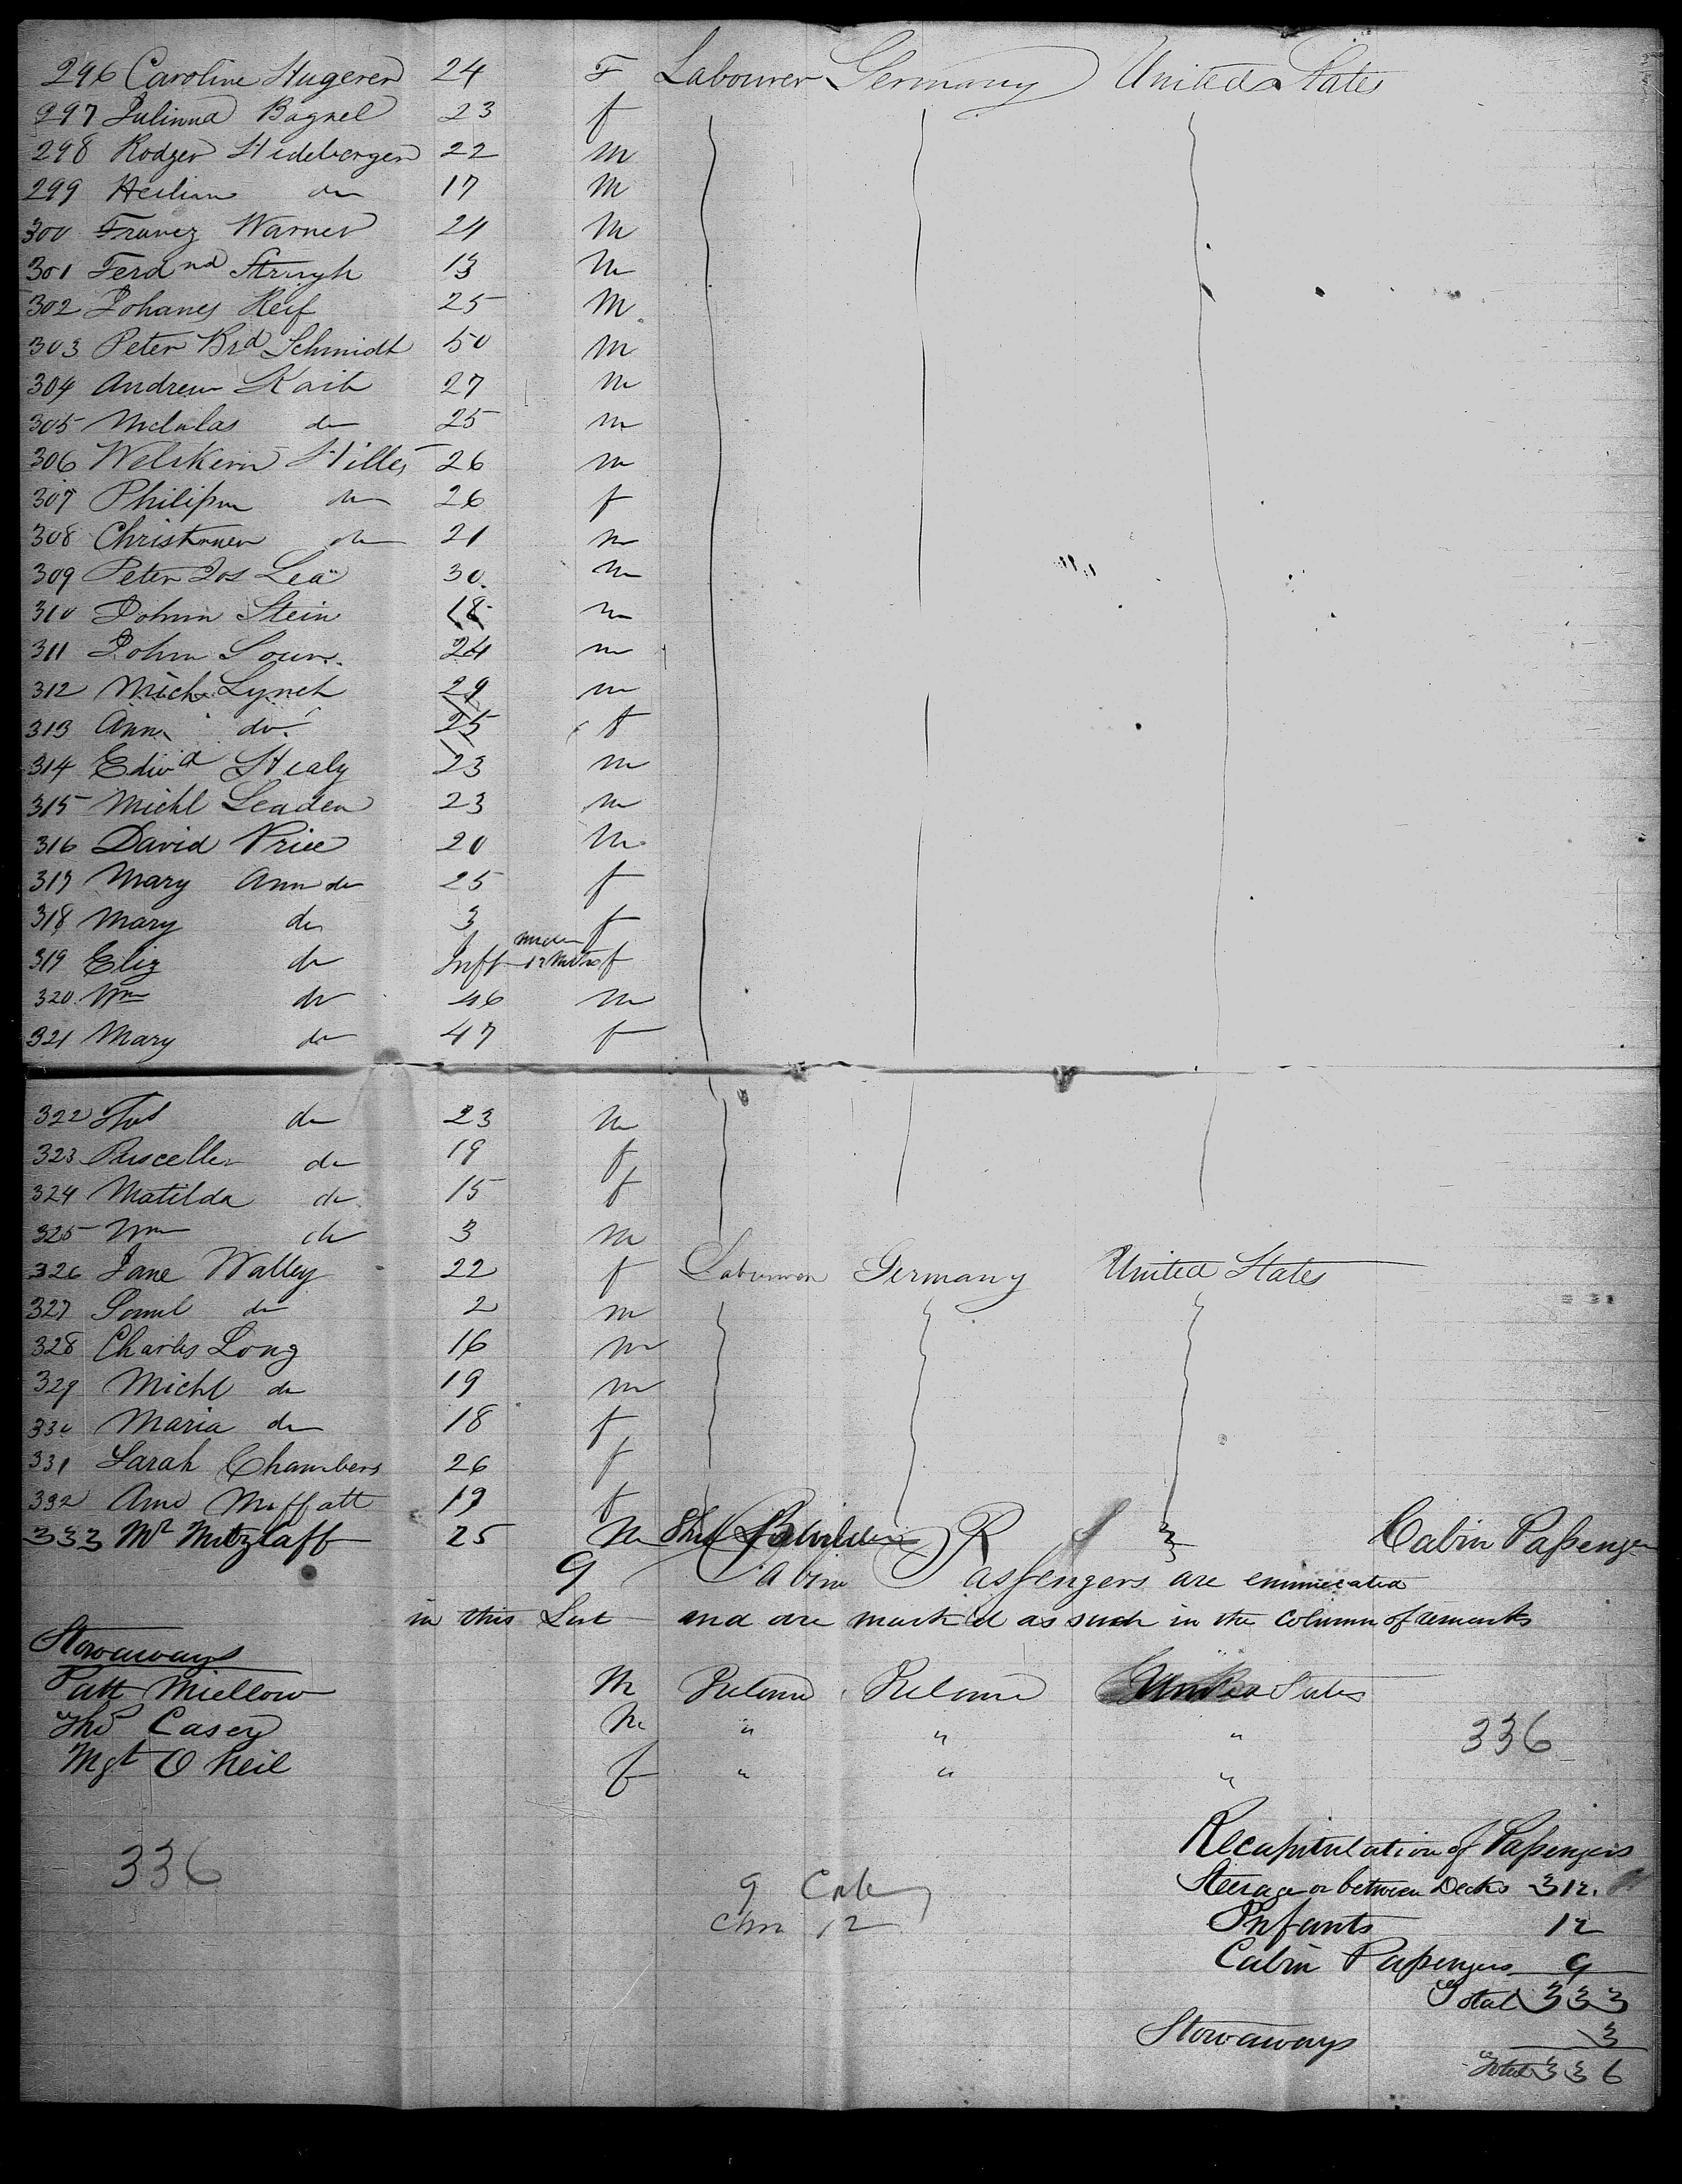 296 Caroline Hugerer 24 F Labourer Germany United States
297 Julinna Bagnel 23 f
298 Rodger Hedeberger 22 m
299 do 17 m
300 Franez Warner 24 m
301 Ferdnd 13 m
302 Johanes Reif 25 m
303 Peter Brd Schmidt 50 m
304 Andrew Kaib 27 m
305 do 25 m
306 Hilles 26 m
307 do 26 f
308 do 21 m
309 Peter Jos Lea 30 m
310 Johnn Stein 18 m
311 John 24 m
312 Mich Lynch 29 m
313 Ann do 25 f
314 Edwd Healy 23 m
315 Michl Leaden 23 m
316 David Price 20 m
317 Mary Ann do 25 f
318 Mary do 3 f
319 Eliz do Inft under 12 Mths f
320 Wm do 46 m
321 Mary do 47 f
322 Thos do 23 m
323 do 19 f
324 Matilda do 15 f
325 Wm do 3 m
326 Jane Walley 22 f Labourer Germany United States
327 Saml do 2 m
328 Charles Long 16 m
329 Michl do 19 m
330 Maria do 18 f
331 Sarah Chambers 26 f
332 Ann Moffatt 19 f
333 Mr Mitzlaff 25 m Cabin Passenger
9 Cabin Passengers are enumerated
in this List and are mark'd as such in the column of remarks
Stowaways
Patt Miellow M Ireland Ireland United States
Thos Casey M " " "
336
Mgt O Neil f " " "
Recapitulation of Passengers
336
Steerage or between Decks 312
9 Cab
Chn 12
Infants 12
Cabin Passengers 9
Total 333
Stowaways 3
Total 336